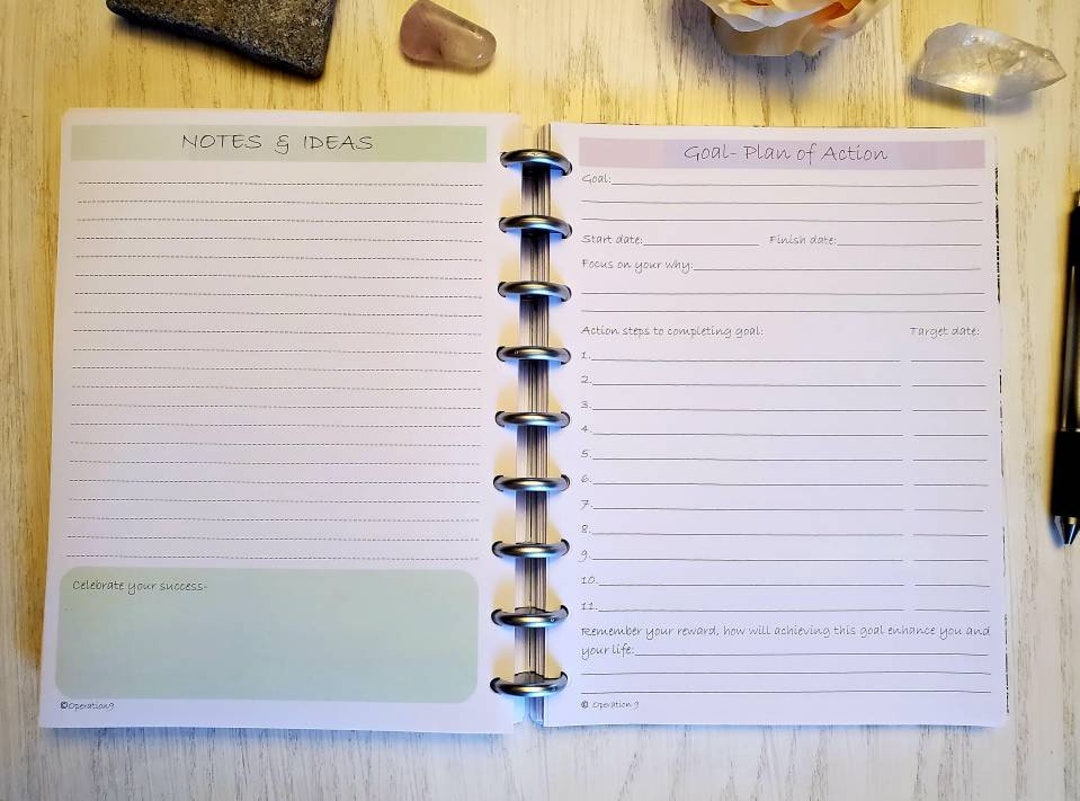 NOTES & IDEAS
Celebrate your success-
©Operation9
Goal- Plan of Action
Goal:
Start date: Finish date:
Focus on your why:
Action steps to completing goal: Target date:
1.
2.
3.
4.
5.
6.
7.
8.
9.
10.
11.
Remember your reward, how will achieving this goal enhance you and
your life:
© Operation 9